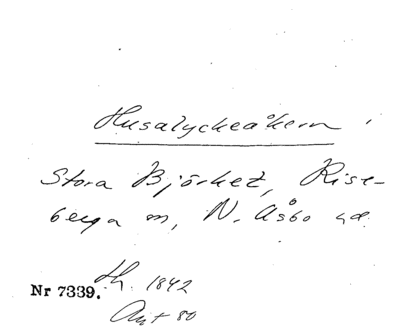 Husalyckeåkern
Stora Björket, Rise-
berga sn, N. Åsbo hd.
Nr 7339. 1842
Akt 80